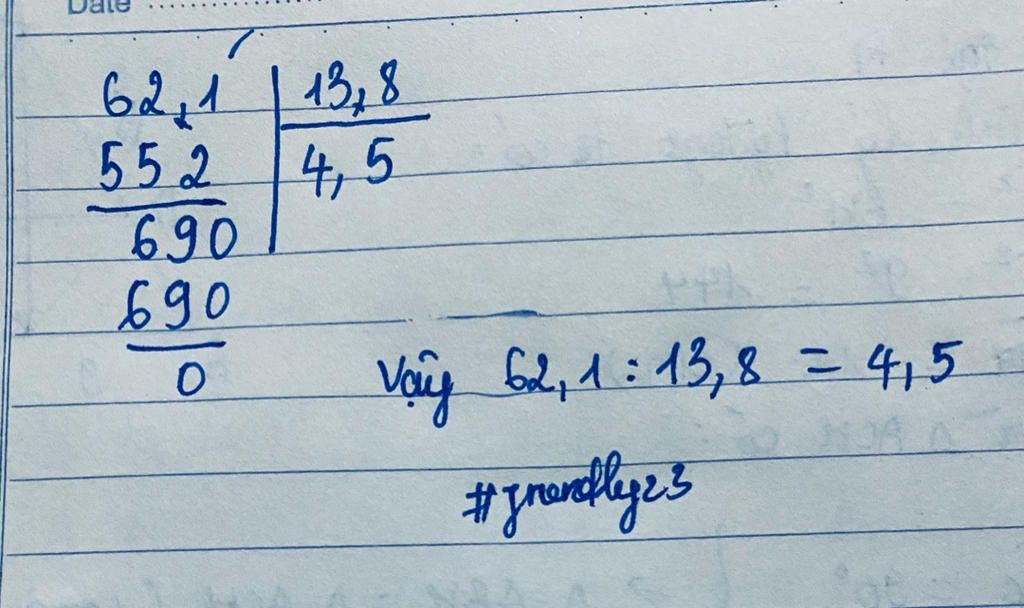 Date
62,1 | 13,8
552 | 4,5
690
690
0
Vậy 62,1 : 13,8 = 4,5